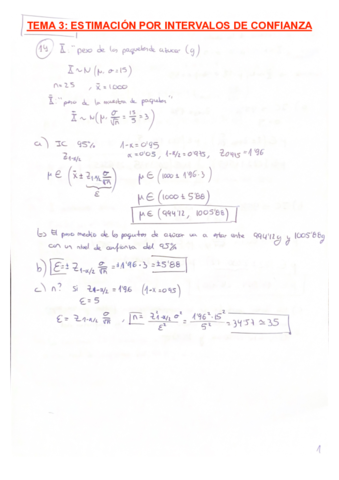 TEMA 3: ESTIMACIÓN POR INTERVALOS DE CONFIANZA
14 X "peso de los paquetes de azucar (g)
X ~ N (μ, σ=15)
n=25 , x̄=1000
X̄ "peso de la muestra de paquetes"
X̄ ~ N(μ, σ/√n = 15/5 = 3)
a) IC 95% 1-α=0'95
Z1-α/2 α=0'05, 1-α/2=0'975, Z0'975=1'96
μ ∈ (x̄ ± Z1-α/2 σ/√n) μ ∈ (1000 ± 1'96·3)
ε μ ∈ (1000 ± 5'88)
μ ∈ (994'12, 1005'88)
b) El peso medio de los paquetes de azucar va a estar entre 994'12g y 1005'88g
con un nivel de confianza del 95%
b) ε=± Z1-α/2 σ/√n = ±1'96·3 = ±5'88
c) n? si Z1-α/2 = 1'96 (1-α=0'95)
ε=5
ε = Z1-α/2 σ/√n , n = Z²1-α/2 σ²/ε² = 1'96²·15²/5² = 34'57 ≃ 35
1